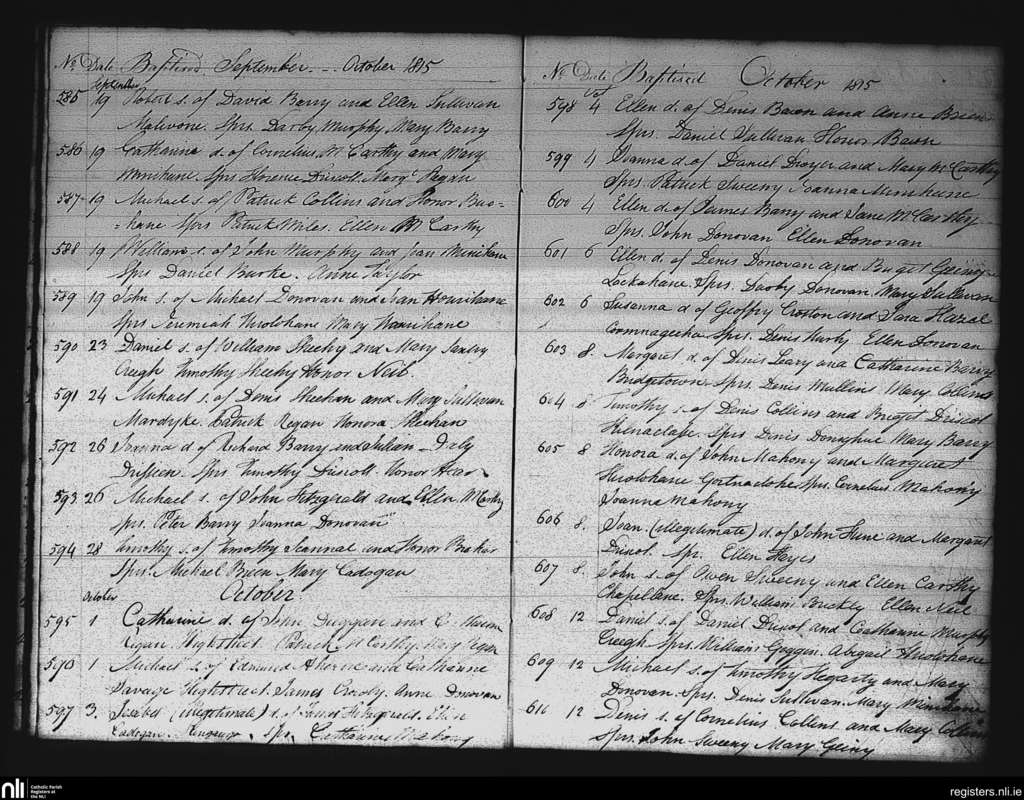 No Date Baptised September - - October 1815
September
585 19 Robert s. of David Barry and Ellen Sullivan
Malivone. Sprs. Darby Murphy Mary Barry
586 19 Catharine d. of Cornelius McCarthy and Mary
Minihane. Sprs Florence Driscoll. Margt Regan
587 19 Michael s. of Patrick Collins and Honor Buo-
-hane Sprs Patrick Miles. Ellen McCarthy
588 19 William s. of John Murphy and Jean Minihane
Sprs Daniel Burke. Anne Taylor
589 19 John s. of Michael Donovan and Joan Hourihane
Sprs Jeremiah Hrolohane Mary Hourihane
590 23 Daniel s. of William Sheehy and Mary
Creegh Timothy Sheehy Honor Neil.
591 24 Michael s. of Denis Sheehan and Mary Sullivan
Mardyke. Patrick Regan Honora Sheehan
592 26 Joanna d. of Richard Barry and Daly
Drisheen. Sprs Timothy Driscoll. Honor
593 26 Michael s. of John Fitzgerald and Ellen McCarthy
Sprs. Peter Barry Joanna Donovan
594 28 Timothy s. of Timothy and Honor Braker
Sprs. Michael Brien Mary Cadogan
October October
595 1 Catharine d. of John Duggan and C.
Highstreet Patrick McCarthy Mary Regan
596 1 Michael s. of Edmund Aherne and Catharine
Savage Highstreet. James Crosby. Anne Donovan
597 3. (Illegitimate) d. of James Fitzgerald. Ellen
Cadogan. Sprs. Catharine Mahony
No Date Baptised October 1815
Oct
598 4 Ellen d. of Denis Bacon and Anne Brien
Sprs. Daniel Sullivan Honor Bacon
599 4 Joanna d. of Daniel Dwyer and Mary McCarthy
Sprs Patrick Sweeny Joanna Minihane
600 4 Ellen d. of James Barry and Jane McCarthy
Sprs. John Donovan Ellen Donovan
601 6 Ellen d. of Denis Donovan and Bridget
Lackahane. Sprs. Darby Donovan. Mary Sullivan
602 6 Susanna d. of Geoffry Croston and Sara Hazal
Sprs. Denis Hurly Ellen Donovan
603 8. Margaret d. of Denis Leary and Catharine Barry
Bridgetown Sprs. Denis Mullins Mary Collins
604 8 Timothy s. of Denis Collins and Bridget Driscol
Sprs Denis Donoghue Mary Barry
605 8 Honora d. of John Mahony and Margaret
Hrolohane Gortnaclohe Sprs. Cornelius Mahony
Joanna Mahony
606 8. Joan. (illegitimate) d. of John Hune and Margaret
Driscol. Spr. Ellen Hayes
607 8. John s. of Owen Sweeny and Ellen Carthy
Chapellane. Sprs. William Buckly Ellen Neil
608 12 Daniel s. of Daniel Driscol and Catharine Murphy
Creegh Sprs. William Goggin. Abigail Hrolohane
609 12 Michael s. of Timothy Hegarty and Mary
Donovan. Sprs. Denis Sullivan. Mary Minihane
610 12 Denis s. of Cornelius Collins and Mary Collins
Sprs. John Sweeny Mary
nli
Catholic Parish
Registers at
the NLI
registers.nli.ie